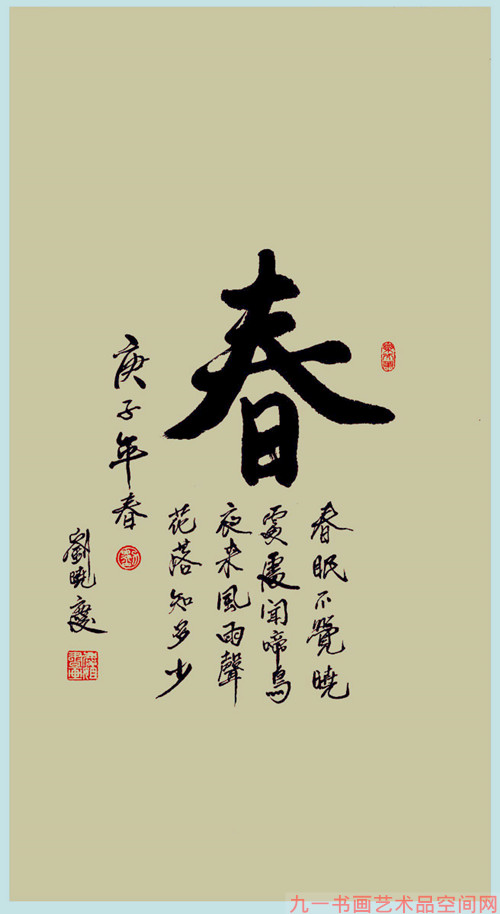 春
春眠不覺曉
處處聞啼鳥
夜来風雨聲
花落知多少
庚子年春
劉曉慶
九一书画艺术品空间网